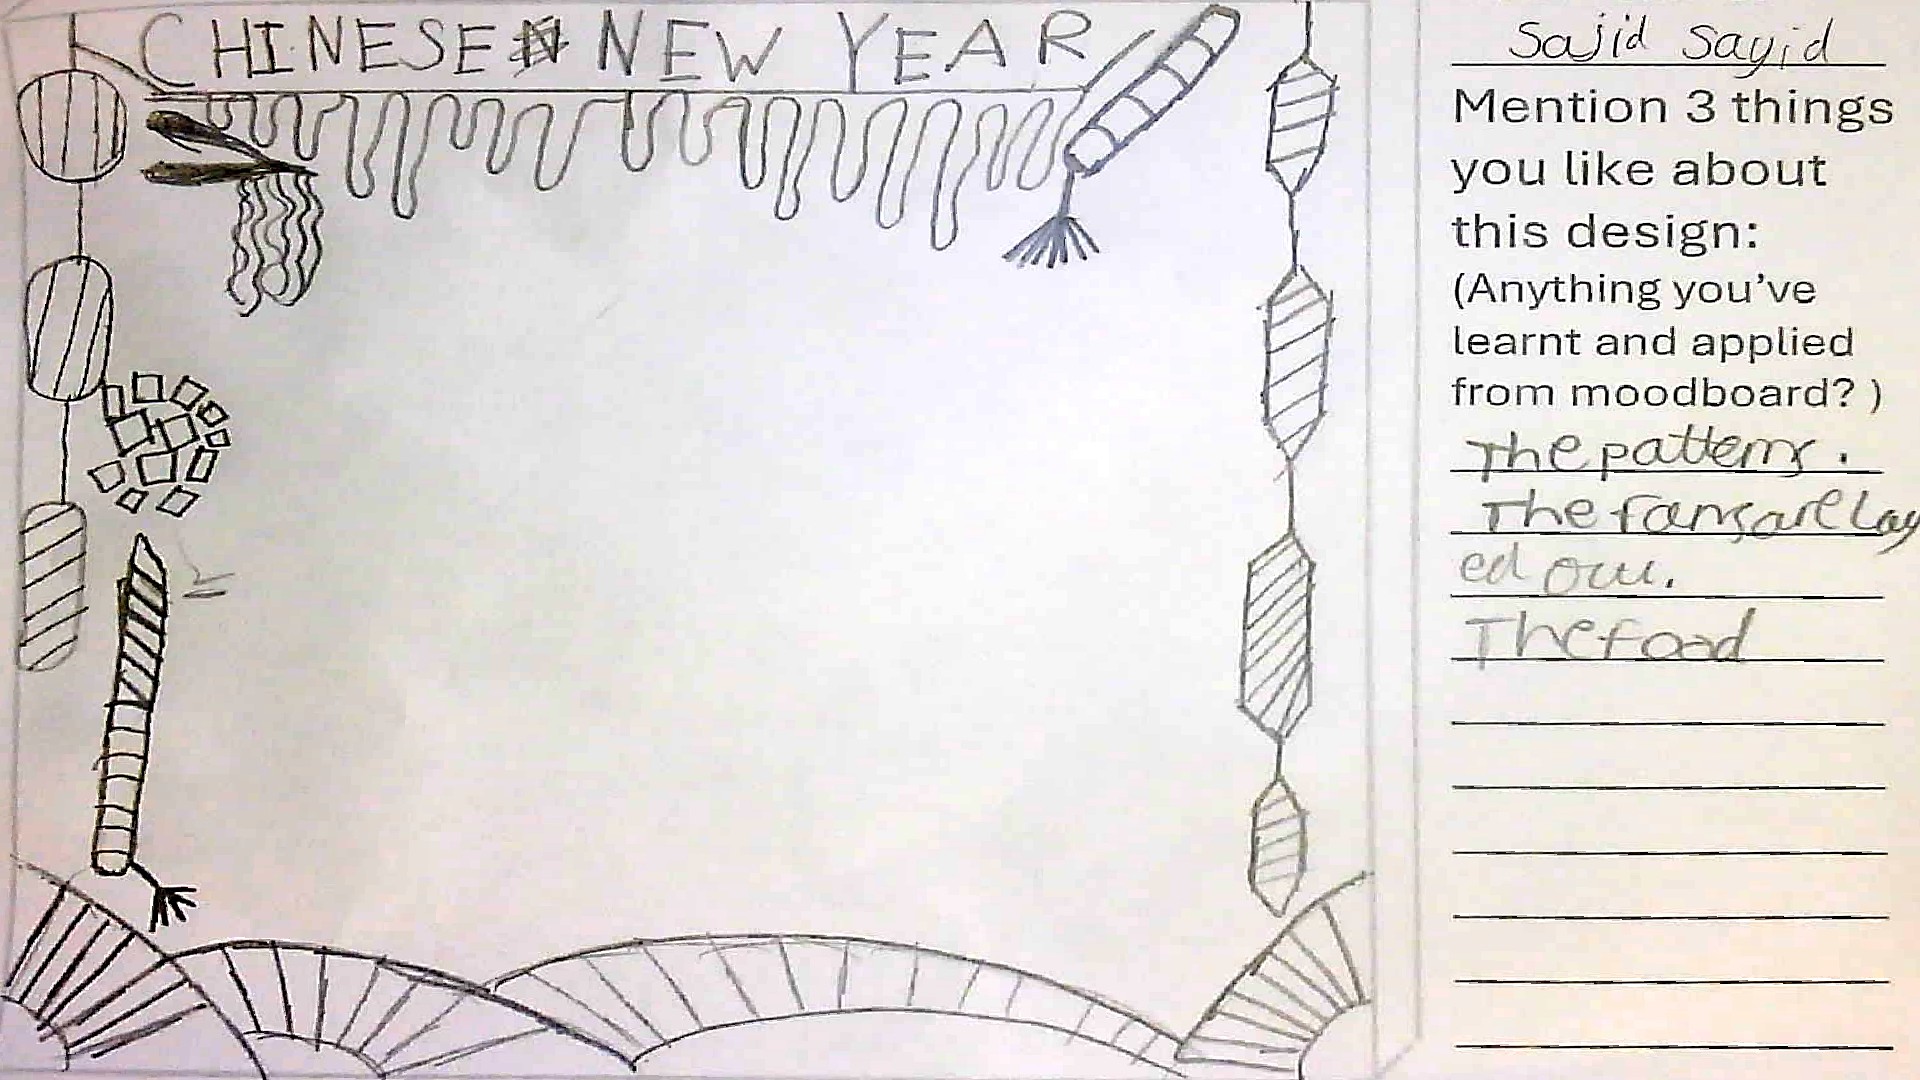 CHINESE NEW YEAR
Sajid Sayid
Mention 3 things
you like about
this design:
(Anything you've
learnt and applied
from moodboard? )
The patterns.
The fans are lay
ed out.
The food